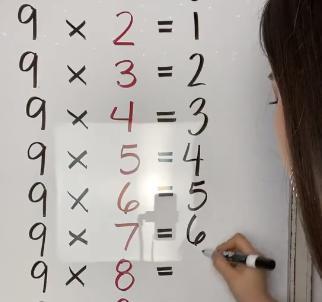 9 × 2 = 1
9 × 3 = 2
9 × 4 = 3
9 × 5 = 4
9 × 6 = 5
9 × 7 = 6
9 × 8 =